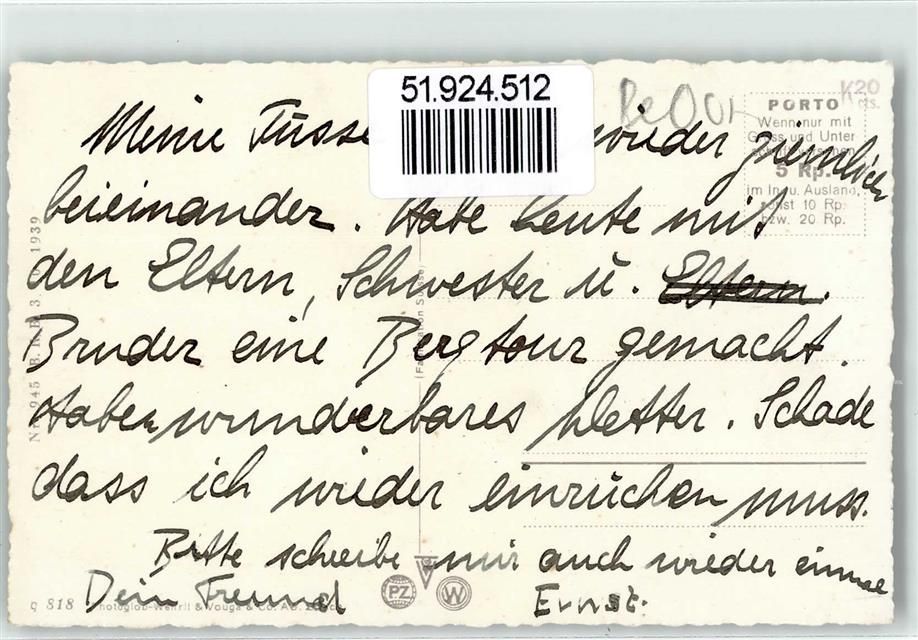 51.924.512
K20
cts.
PORTO
Wenn nur mit
Gruss und Unter
5 Rp.
im Inzu. Ausland,
sonst 10 Rp.
bzw. 20 Rp.
Meine Füsse wieder ziemlich
beieinander. Habe heute mit
den Eltern, Schwester u. Eltern.
Bruder eine Bergtour gemacht.
Haben wunderbares Wetter. Schade
dass ich wieder einrücken muss.
Bitte schreibe mir auch wieder einmal
Dein Freund Ernst.
1939
c 818 Photoglob-Wehrli & Vouga & Co. AG.
PZ
W